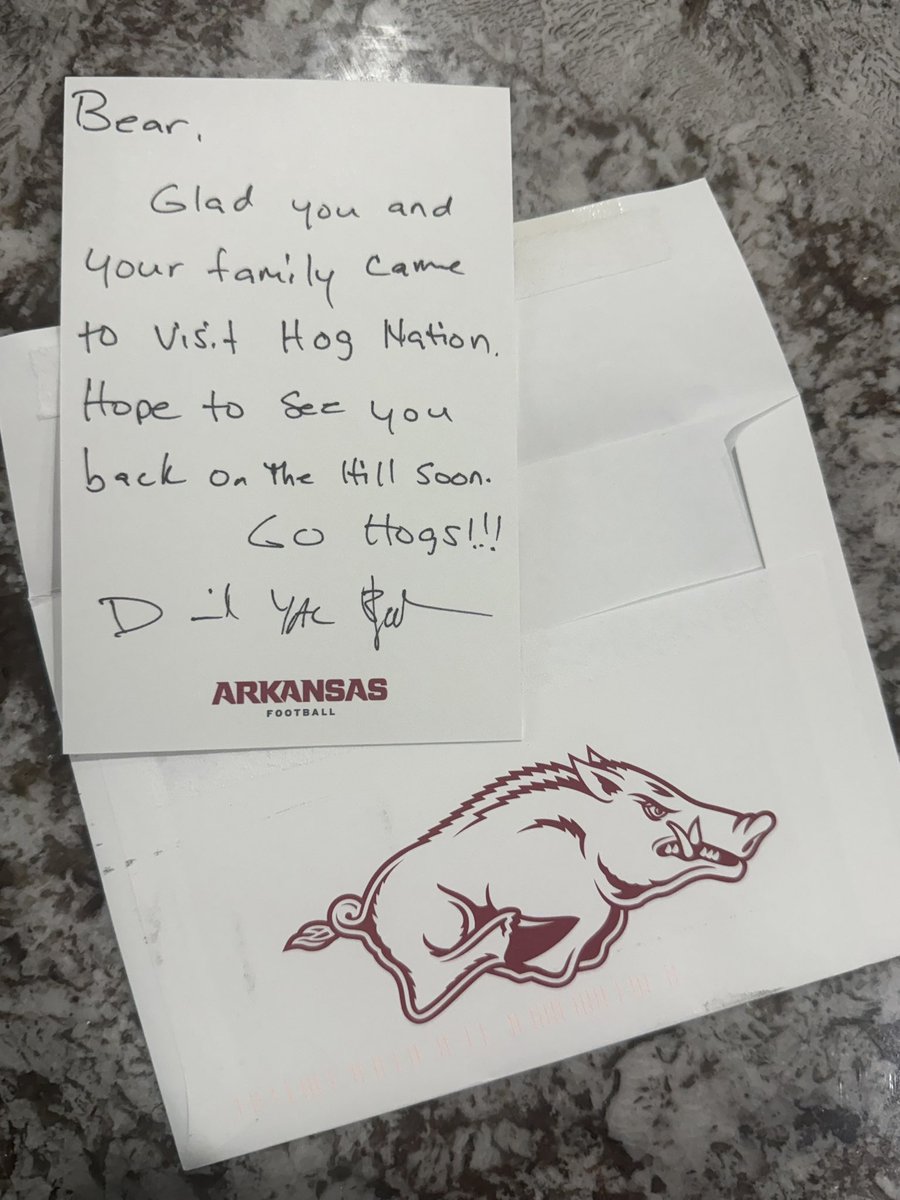 Bear,
Glad you and
your family came
to visit Hog Nation.
Hope to see you
back on the Hill soon.
Go Hogs!!!
ARKANSAS
FOOTBALL